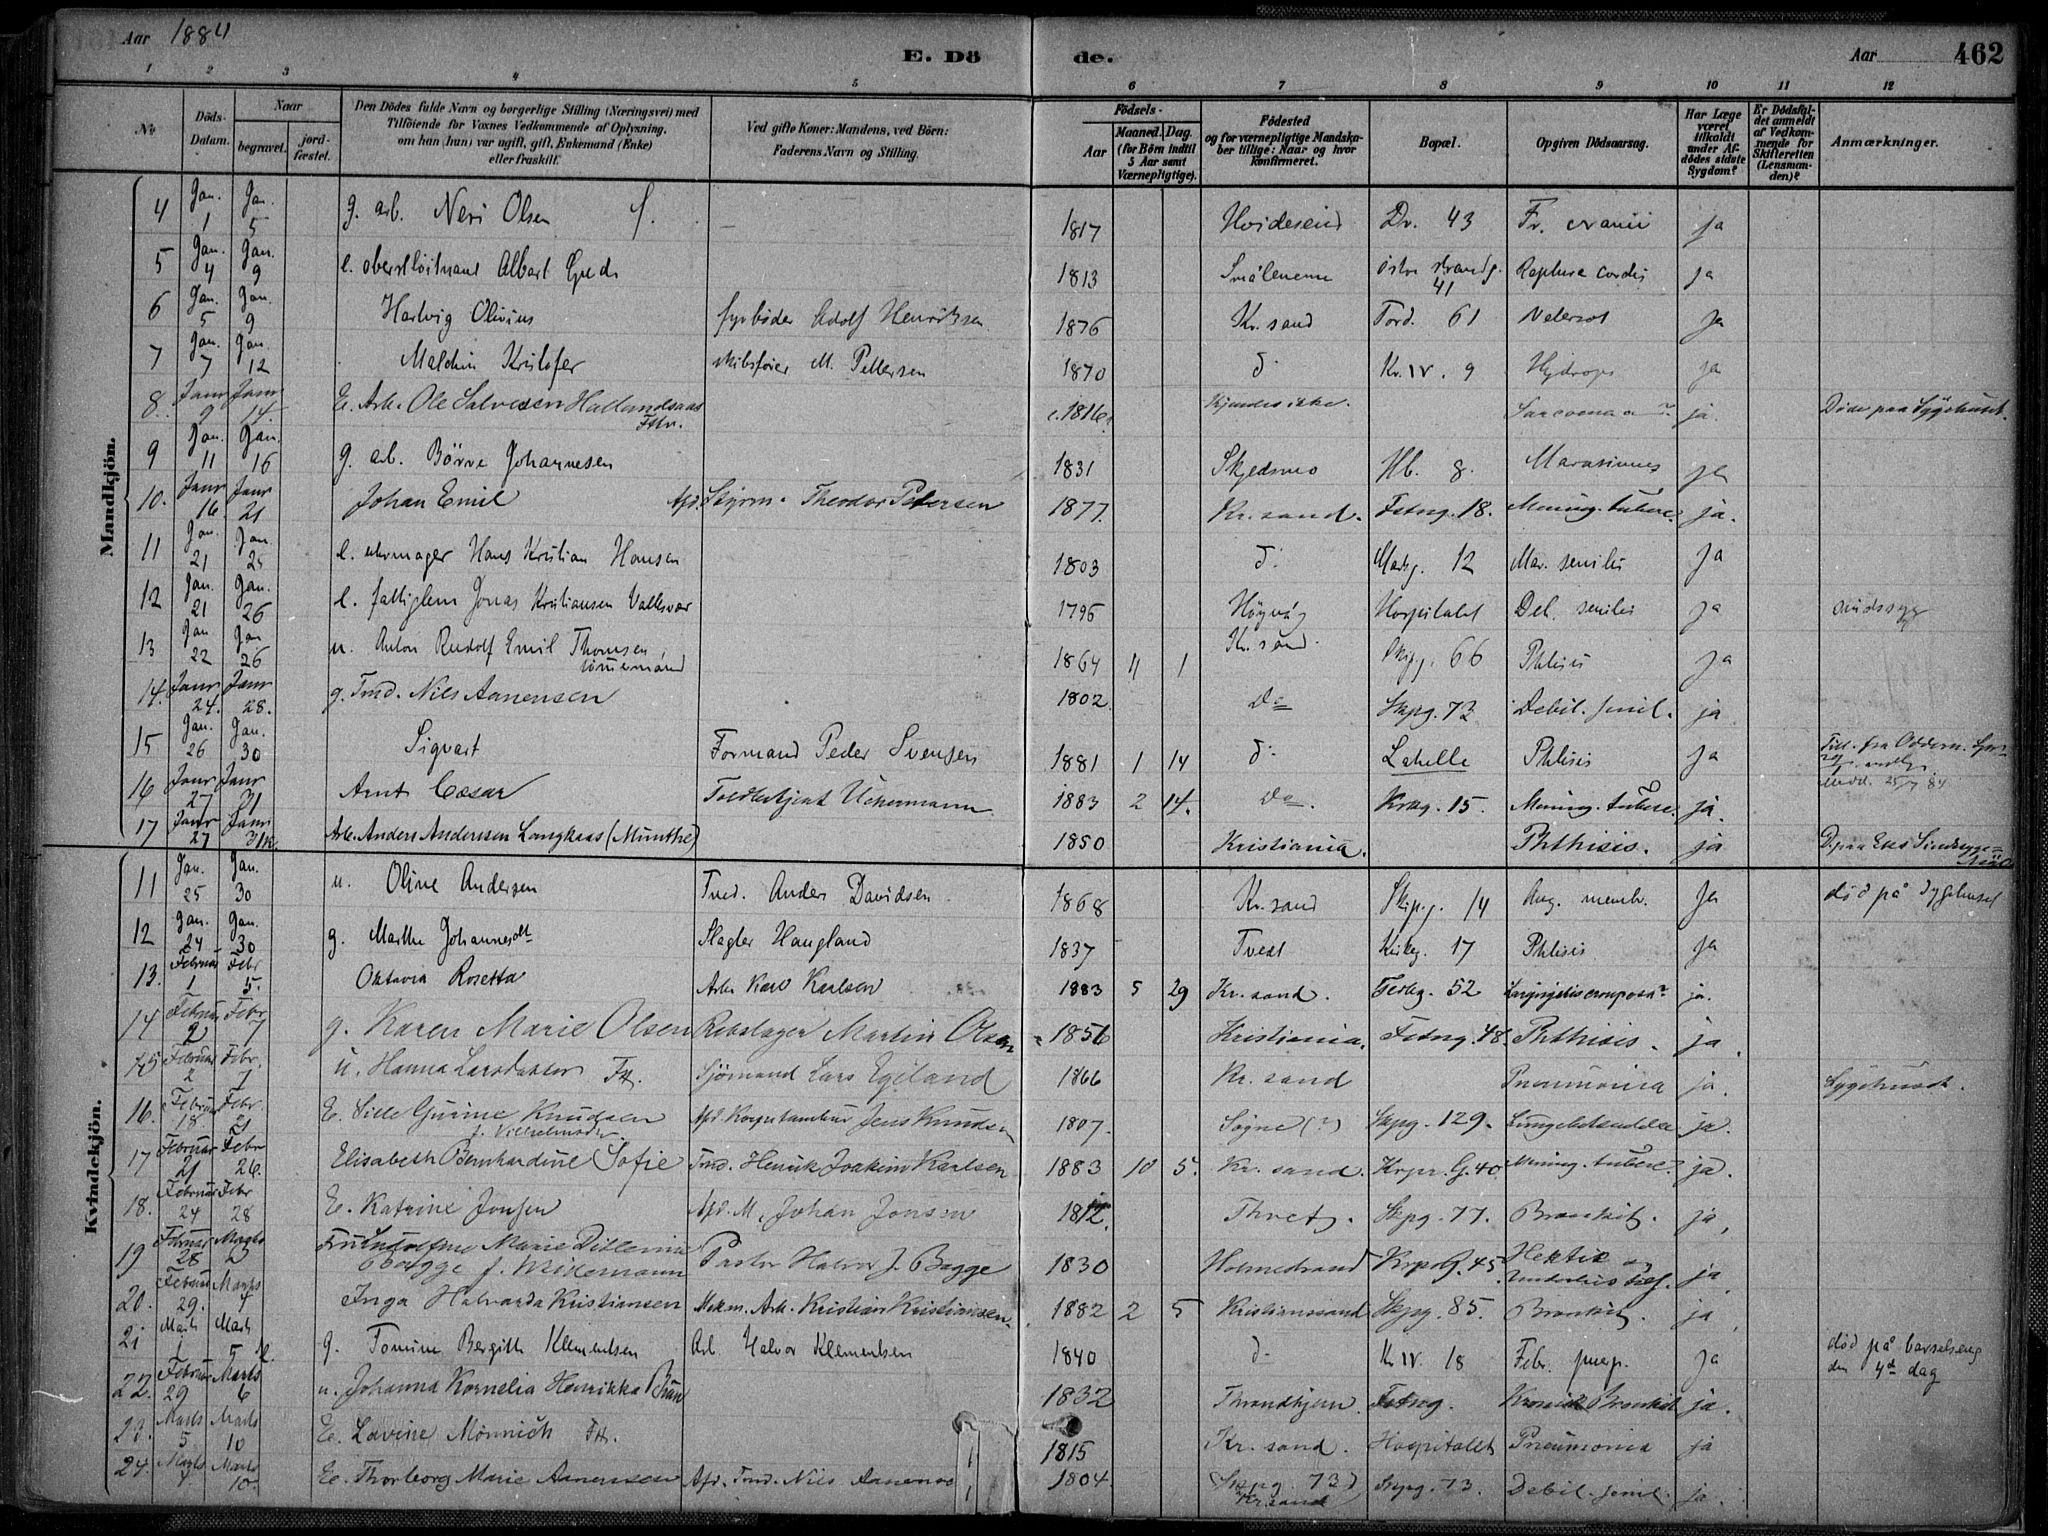 Aar 1884 E. Dö de. Aar 462
1 2 3 4 5 6 7 8 9 10 11 12
No Döds-Datum. Naar begravet. jord-fæstet. Den Dödes fulde Navn og borgerlige Stilling (Næringsvei) med Tilföiende for Voxnes Vedkommende af Oplysning, om han (hun) var ugift, gift, Enkemand (Enke) eller fraskilt. Ved gifte Koner: Mandens, ved Börn: Faderens Navn og Stilling. Födsels- Aar Maaned. Dag. (for Börn indtil 5 Aar samt Værnepligtige). Födested og for værnepligtige Mandskaber tillige: Naar og hvor konfirmeret. Bopæl. Opgiven Dödsaarsag. Har Læge været tilkaldt under Afdödes sidste Sygdom? Er Dödsfaldet anmeldt af Vedkommende for Skifteretten (Lensmanden)? Anmærkninger.
Mandkjön.
4 Jan. 1 Jan. 5 g. arb. Neri Olsen f. — 1817 Hvideseid Dr. 43 Fr. cranii ja
5 Jan. 4 Jan. 9 e. oberstlöitnant Albert Gude 1813 Smålenene östre strandg. 41 Ruptura cordis ja
6 Jan. 5 Jan. 9 Hartvig Olivius fyrböder Adolf Henriksen 1876 Kr.sand Tord. 61 ja
7 Jan. 7 Jan. 12 Kristofer skibsförer M. Pettersen 1870 do Kr. IV. 9 Hydrops ja
8. Janr 9 Janr 14. E. Arb. Ole Salvesen Hallandsaas Fttv. c. 1816 Kjendes ikke. ja. Döde paa Sygehuset.
9 Jan. 11 Jan. 16 g. arb. Börre Johannesen 1831 Skjedsmo Hb. 8. Marasmus ja
10. Janr 16. Janr 21 Johan Emil Afd. Styrm. Theodor Petersen 1877. Kr.sand. Fstng. 18. Mening. tuberc. ja.
11 Jan. 21 Jan. 25 e. urmager Hans Kristian Hansen 1803 do Markg. 12 Mar. senilis ja
12 Jan. 21 Jan. 26 e. fattiglem Jonas Kristiansen Vallesvær 1795 Högvåg Hospitalet Deb. senilis ja sindssyg
13 Jan 22 Jan 26 u. Anton Rudolf Emil Thomsen, tömmermand 1864 11 1 Kr.sand. Skipg. 66 Phtisis ja
14. Janr 24. Janr 28. g. Tmd. Nils Aanensen 1802. Do Skpg. 73 Debil. senil. ja
15 Jan. 26 Jan. 30 Sigvart Formand Peder Svensen 1881 1 14 do Lahelle Phtisis ja Till. fra Oddern.
16 Janr 27 Janr 31 Arnt Cæsar Toldbetjent Uchermann 1883 2 14. Do. Krkg. 15. Mening. tuberc. ja.
17 Janr 27 Janr 31 Arb. Anders Andersen Langkaas (Munthe) 1850 Kristiania. Phthisis. ja
Kvindekjön.
11 Jan. 25 Jan. 30 u. Oline Andersen Tmd. Anders Davidsen 1868 Kr.sand Skip.g. 14 Ang. membr. ja död på sygehuset
12 Jan. 24 Jan. 30 g. Marthe Johannesdt Slagter Haugland 1837 Tvedt Kirkeg. 17 Phtisis ja
13. Februar 1 Febr 5. Oktavia Rosetta Arb. Karl Karlsen 1883 5 29 Kr.sand. Festng. 52 Laryngitis crouposa ja.
14 Februar 2 Febr 7 g. Karen Marie Olsen Rebslager Martin Olsen 1856 Kristiania. Fstng. 48. Phthisis. ja.
15 Februar 2 Febr. 7 u. Hanna Larsdatter Ftt. Sjömand Lars Egeland 1866 Kr.sand Pneumonia ja. Sygehuset.
16. Februar 18 Febr 21 E. Sille Gurine Knudsen f. Vilhelmsdtr. Afd. Korpstambur Jens Knudsen 1807. Søgne (?) Skpg. 129. Lungebetændelse ja.
17 Februar 21 Febr 26. Elisabeth Bernhardine Sofie Tmd. Henrik Joakim Karlsen 1883 10 5. Kr.sand. Krpr. G. 40 Mening. tuberc. ja.
18. Februar 24 Febr 28 E. Katrine Jonsen Afd. M. Johan Jonsen 1812. Thvet. Skpg. 77. Bronkit. ja.
19 Februar 28 Marts 2 Fru Marie Ditlevine Bagge f. Widemann Pastor Halvor J. Bagge 1830 Holmestrand KrpG. 45 Hektik og ja.
20. Februar 29. Marts 7 Inga Halvarda Kristiansen Mekm. Arb. Kristian Kristiansen. 1882 2 5 Kristianssand Skpg. 85. Bronkit. ja.
21 Marts 1 Marts 5 g. Tomine Bergith Klementsen Arb. Halvor Klementsen 1840 do Kr IV. 18 Febr. puerp. ja död på barselseng den 4de dag
22. Februar 29 Marts 6 u. Johanna Kornelia Henrikka Brun 1832 Throndhjem. Fstng. Kronisk Bronkit ja.
23. Marts 5 Marts 10 E. Lavine Mönnich Ftt. 1815 Kr.sand. Hospitalet Pneumonia ja
24. Marts 7. Marts 10. E. Thorborg Marie Aanensen Afd. Tmd. Nils Aanensen 1804. (Skpg. 73) Kr.sand Skpg. 73. Debil. senil. ja.